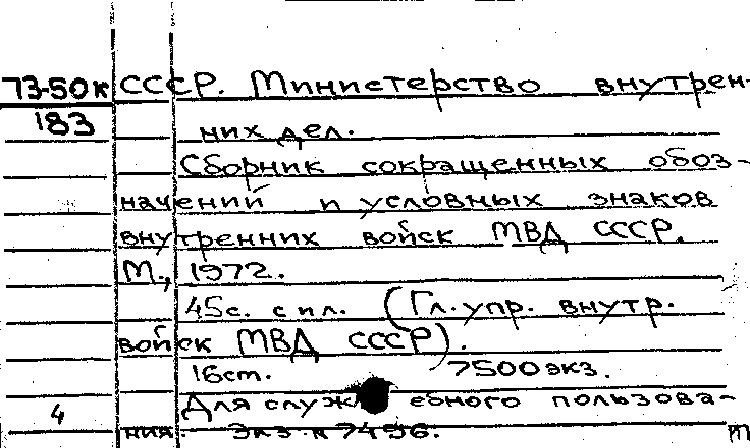 73-50к СССР. Министерство внутрен-
183 них дел.
Сборник сокращенных обоз-
начений и условных знаков
внутренних войск МВД СССР.
М., 1972.
45с. с ил. (Гл. упр. внутр.
войск МВД СССР).
16ст. 7500экз.
Для служебного пользова-
4 ния. Экз. №7496.